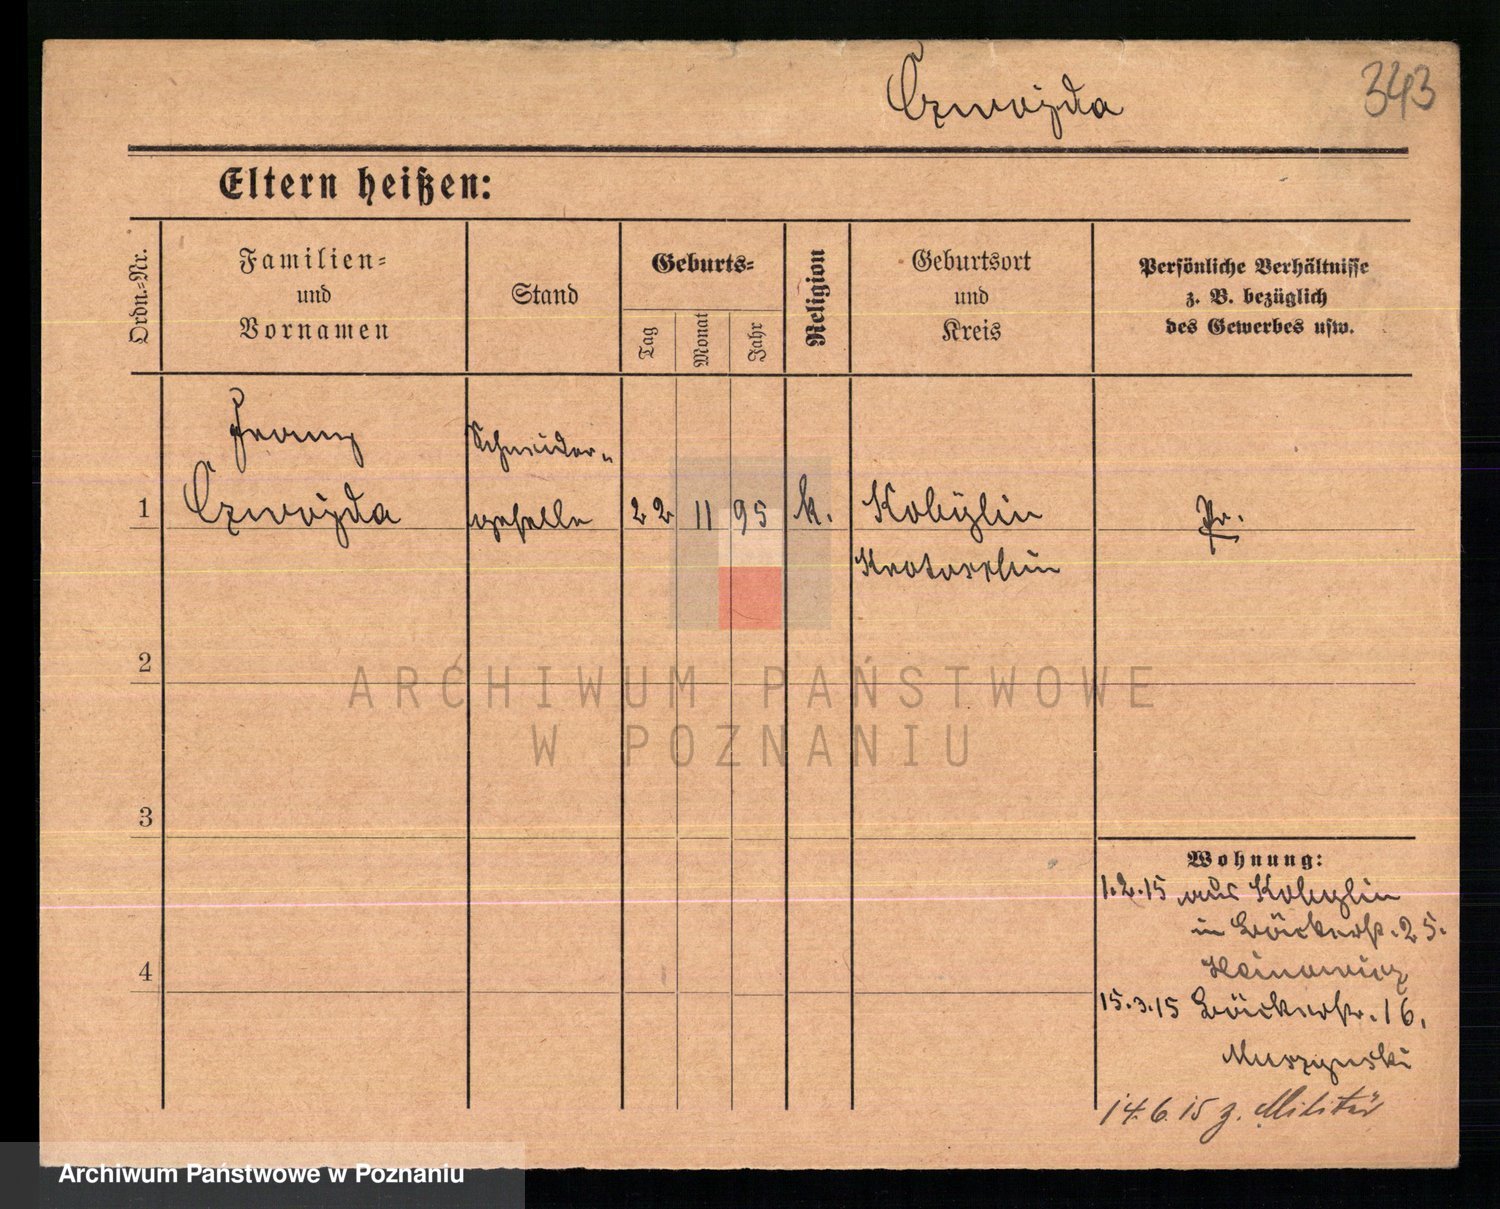 Czwojda
343
Eltern heißen:
Ordn.=Nr.
Familien=
und
Vornamen
Stand
Geburts=
Tag
Monat
Jahr
Religion
Geburtsort
und
Kreis
Persönliche Verhältnisse
z. B. bezüglich
des Gewerbes usw.
Franz Schneider-
1 Czwojda geselle 22 11 95 k. Kobylin Pr.
Krotoschin
2
ARCHIWUM PAŃSTWOWE
W POZNANIU
3
Wohnung:
1.2.15 aus Kobylin
in Bäckerstr. 25.
4
15.3.15 Bäckerstr. 16.
Muszynski
14.6.15 z. Militär
Archiwum Państwowe w Poznaniu